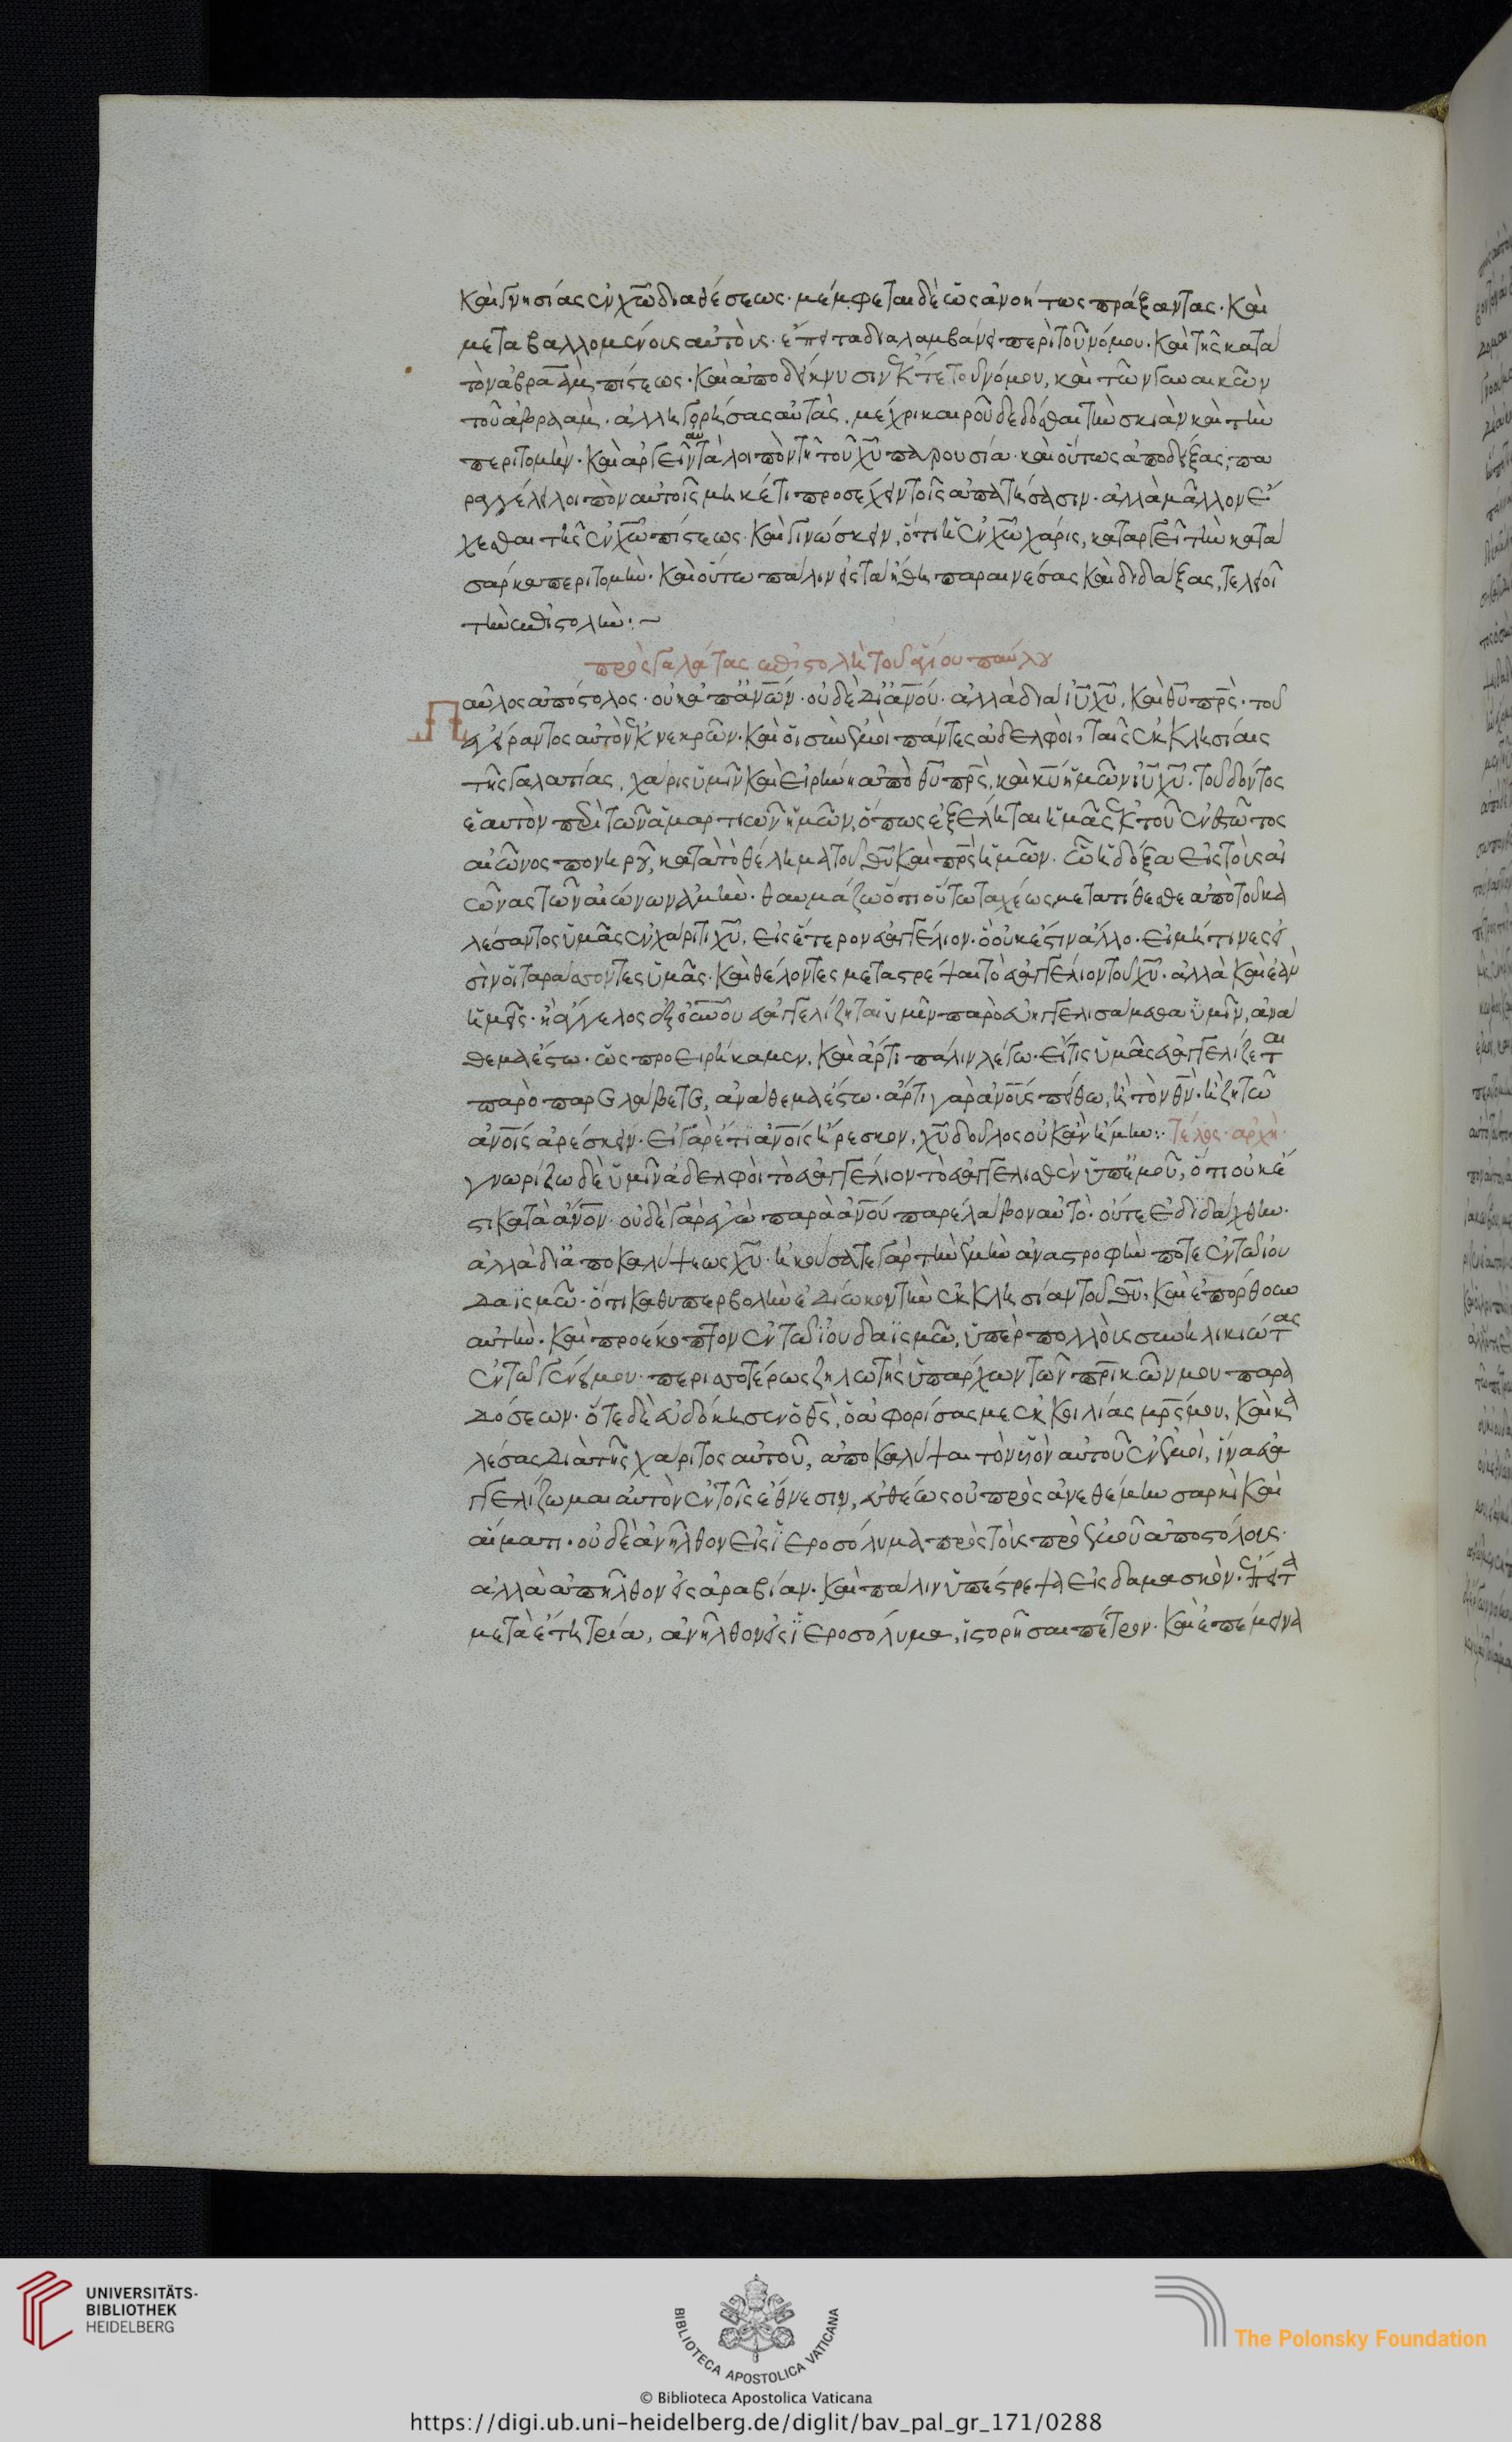 καὶ γνησίας ἐν χῶ διαθέσεως· μέμφεται δὲ ὡς ἀνοήτως πράξαντας· καὶ
μεταβαλλομένοις αὐτοὺς· ἔπειτα διαλαμβάνει περὶ τοῦ νόμου· καὶ τῆς κατὰ
τὸν ἀβραὰμ πίστεως· καὶ ἀποδείκνυσιν ἔκ τε τοῦ νόμου, καὶ τῶν γυναικῶν
τοῦ ἀβραὰμ· ἀλληγορήσας αὐτὰς, μέχρι καιροῦ δεδόσθαι τὴν σκιὰν καὶ τὴν
περιτομὴν· καὶ ἀργεῖν ταῦτα λοιπὸν τῆ τοῦ χῦ παρουσία· καὶ οὕτως ἀποδείξας, πα
ραγγέλλει λοιπὸν αὐτοῖς μηκέτι προσέχειν τοῖς ἀπατήσασιν· ἀλλὰ μᾶλλον ἔ
χεσθαι τῆς ἐν χῶ πίστεως· καὶ γινώσκειν, ὅτι ἡ ἐν χῶ χάρις, καταργεῖ τὴν κατὰ
σάρκα περιτομὴν· καὶ οὕτω πάλιν εἰς τὰ ἤθη παραινέσας καὶ διδάξας, τελειοῖ
τὴν ἐπιστολὴν:~
πρὸς γαλάτας ἐπιστολὴ τοῦ ἁγίου παύλου
Παῦλος ἀπόστολος· οὐκ ἀπ ἀνῶν· οὐδὲ δι ἀνου· ἀλλὰ διὰ ιυ χυ, καὶ θυ πρς· τοῦ
ἐγείραντος αὐτὸν ἐκ νεκρῶν· καὶ οἱ σὺν ἐμοὶ πάντες ἀδελφοὶ, ταῖς ἐκκλησίαις
τῆς γαλατίας, χάρις ὑμῖν καὶ εἰρήνη ἀπὸ θυ πρς, καὶ κυ ἡμῶν ιυ χυ· τοῦ δόντος
ἑαυτὸν περὶ τῶν ἁμαρτιῶν ἡμῶν, ὅπως ἐξέληται ἡμᾶς ἐκ τοῦ ἐνεστῶτος
αἰῶνος πονηροῦ, κατὰ τὸ θέλημα τοῦ θυ καὶ πρς ἡμῶν· ᾧ ἡ δόξα εἰς τοὺς αἰ
ῶνας τῶν αἰώνων ἀμὴν· θαυμάζω ὅτι οὕτω ταχέως μετατίθεσθε ἀπὸ τοῦ κα
λέσαντος ὑμᾶς ἐν χάριτι χυ, εἰς ἕτερον εὐαγγέλιον· ὃ οὐκ ἔστιν ἄλλο· εἰ μή τινες εἰ
σὶν οἱ ταράσσοντες ὑμᾶς· καὶ θέλοντες μεταστρέψαι τὸ εὐαγγέλιον τοῦ χυ· ἀλλὰ καὶ ἐὰν
ἡμεῖς· ἢ ἄγγελος ἐξ οὐνου εὐαγγελίζηται ὑμῖν παρὸ εὐηγγελισάμεθα ὑμῖν, ἀνά
θεμα ἔστω· ὡς προειρήκαμεν, καὶ ἄρτι πάλιν λέγω· εἴτις ὑμᾶς εὐαγγελίζεται
παρὸ παρελάβετε, ἀνάθεμα ἔστω· ἄρτι γὰρ ἀνους πείθω, ἢ τὸν θν· ἢ ζητῶ
ἀνοις ἀρέσκειν· εἰ γὰρ ἔτι ἀνοις ἤρεσκον, χυ δοῦλος οὐκ ἂν ἤμην:· τέλος· ἀρχὴ·
γνωρίζω δὲ ὑμῖν ἀδελφοὶ τὸ εὐαγγέλιον τὸ εὐαγγελισθὲν ὑπ ἐμοῦ, ὅτι οὐκ ἔ
στι κατὰ ἀνον· οὐδὲ γὰρ ἐγὼ παρὰ ἀνου παρέλαβον αὐτὸ· οὔτε ἐδιδάχθην·
ἀλλὰ δι ἀποκαλύψεως χυ· ἠκούσατε γὰρ τὴν ἐμὴν ἀναστροφὴν ποτὲ ἐν τῶ ἰου
δαϊσμῶ· ὅτι καθυπερβολὴν ἐδίωκον τὴν ἐκκλησίαν τοῦ θυ, καὶ ἐπόρθουν
αὐτὴν· καὶ προέκοπτον ἐν τῶ ἰουδαϊσμῶ, ὑπὲρ πολλοὺς συνηλικιώτας
ἐν τῶ γένει μου· περισσοτέρως ζηλωτὴς ὑπάρχων τῶν πρικῶν μου παρα
δόσεων· ὅτε δὲ εὐδόκησεν ὁ θς, ὁ ἀφορίσας με ἐκ κοιλίας μρς μου, καὶ κα
λέσας διὰ τῆς χάριτος αὐτοῦ, ἀποκαλύψαι τὸν υἱὸν αὐτοῦ ἐν ἐμοὶ, ἵνα εὐα
γγελίζωμαι αὐτὸν ἐν τοῖς ἔθνεσιν, εὐθέως οὐ προσανεθέμην σαρκὶ καὶ
αἵματι· οὐδὲ ἀνῆλθον εἰς ἱεροσόλυμα πρὸς τοὺς πρὸ ἐμοῦ ἀποστόλους·
ἀλλὰ ἀπῆλθον εἰς ἀραβίαν· καὶ πάλιν ὑπέστρεψα εἰς δαμασκὸν· ἔπειτα
μετὰ ἔτη τρία, ἀνῆλθον εἰς ἱεροσόλυμα, ἱστορῆσαι πέτρον· καὶ ἐπέμεινα
UNIVERSITÄTS-
BIBLIOTHEK
HEIDELBERG
BIBLIOTECA APOSTOLICA VATICANA
The Polonsky Foundation
© Biblioteca Apostolica Vaticana
https://digi.ub.uni-heidelberg.de/diglit/bav_pal_gr_171/0288